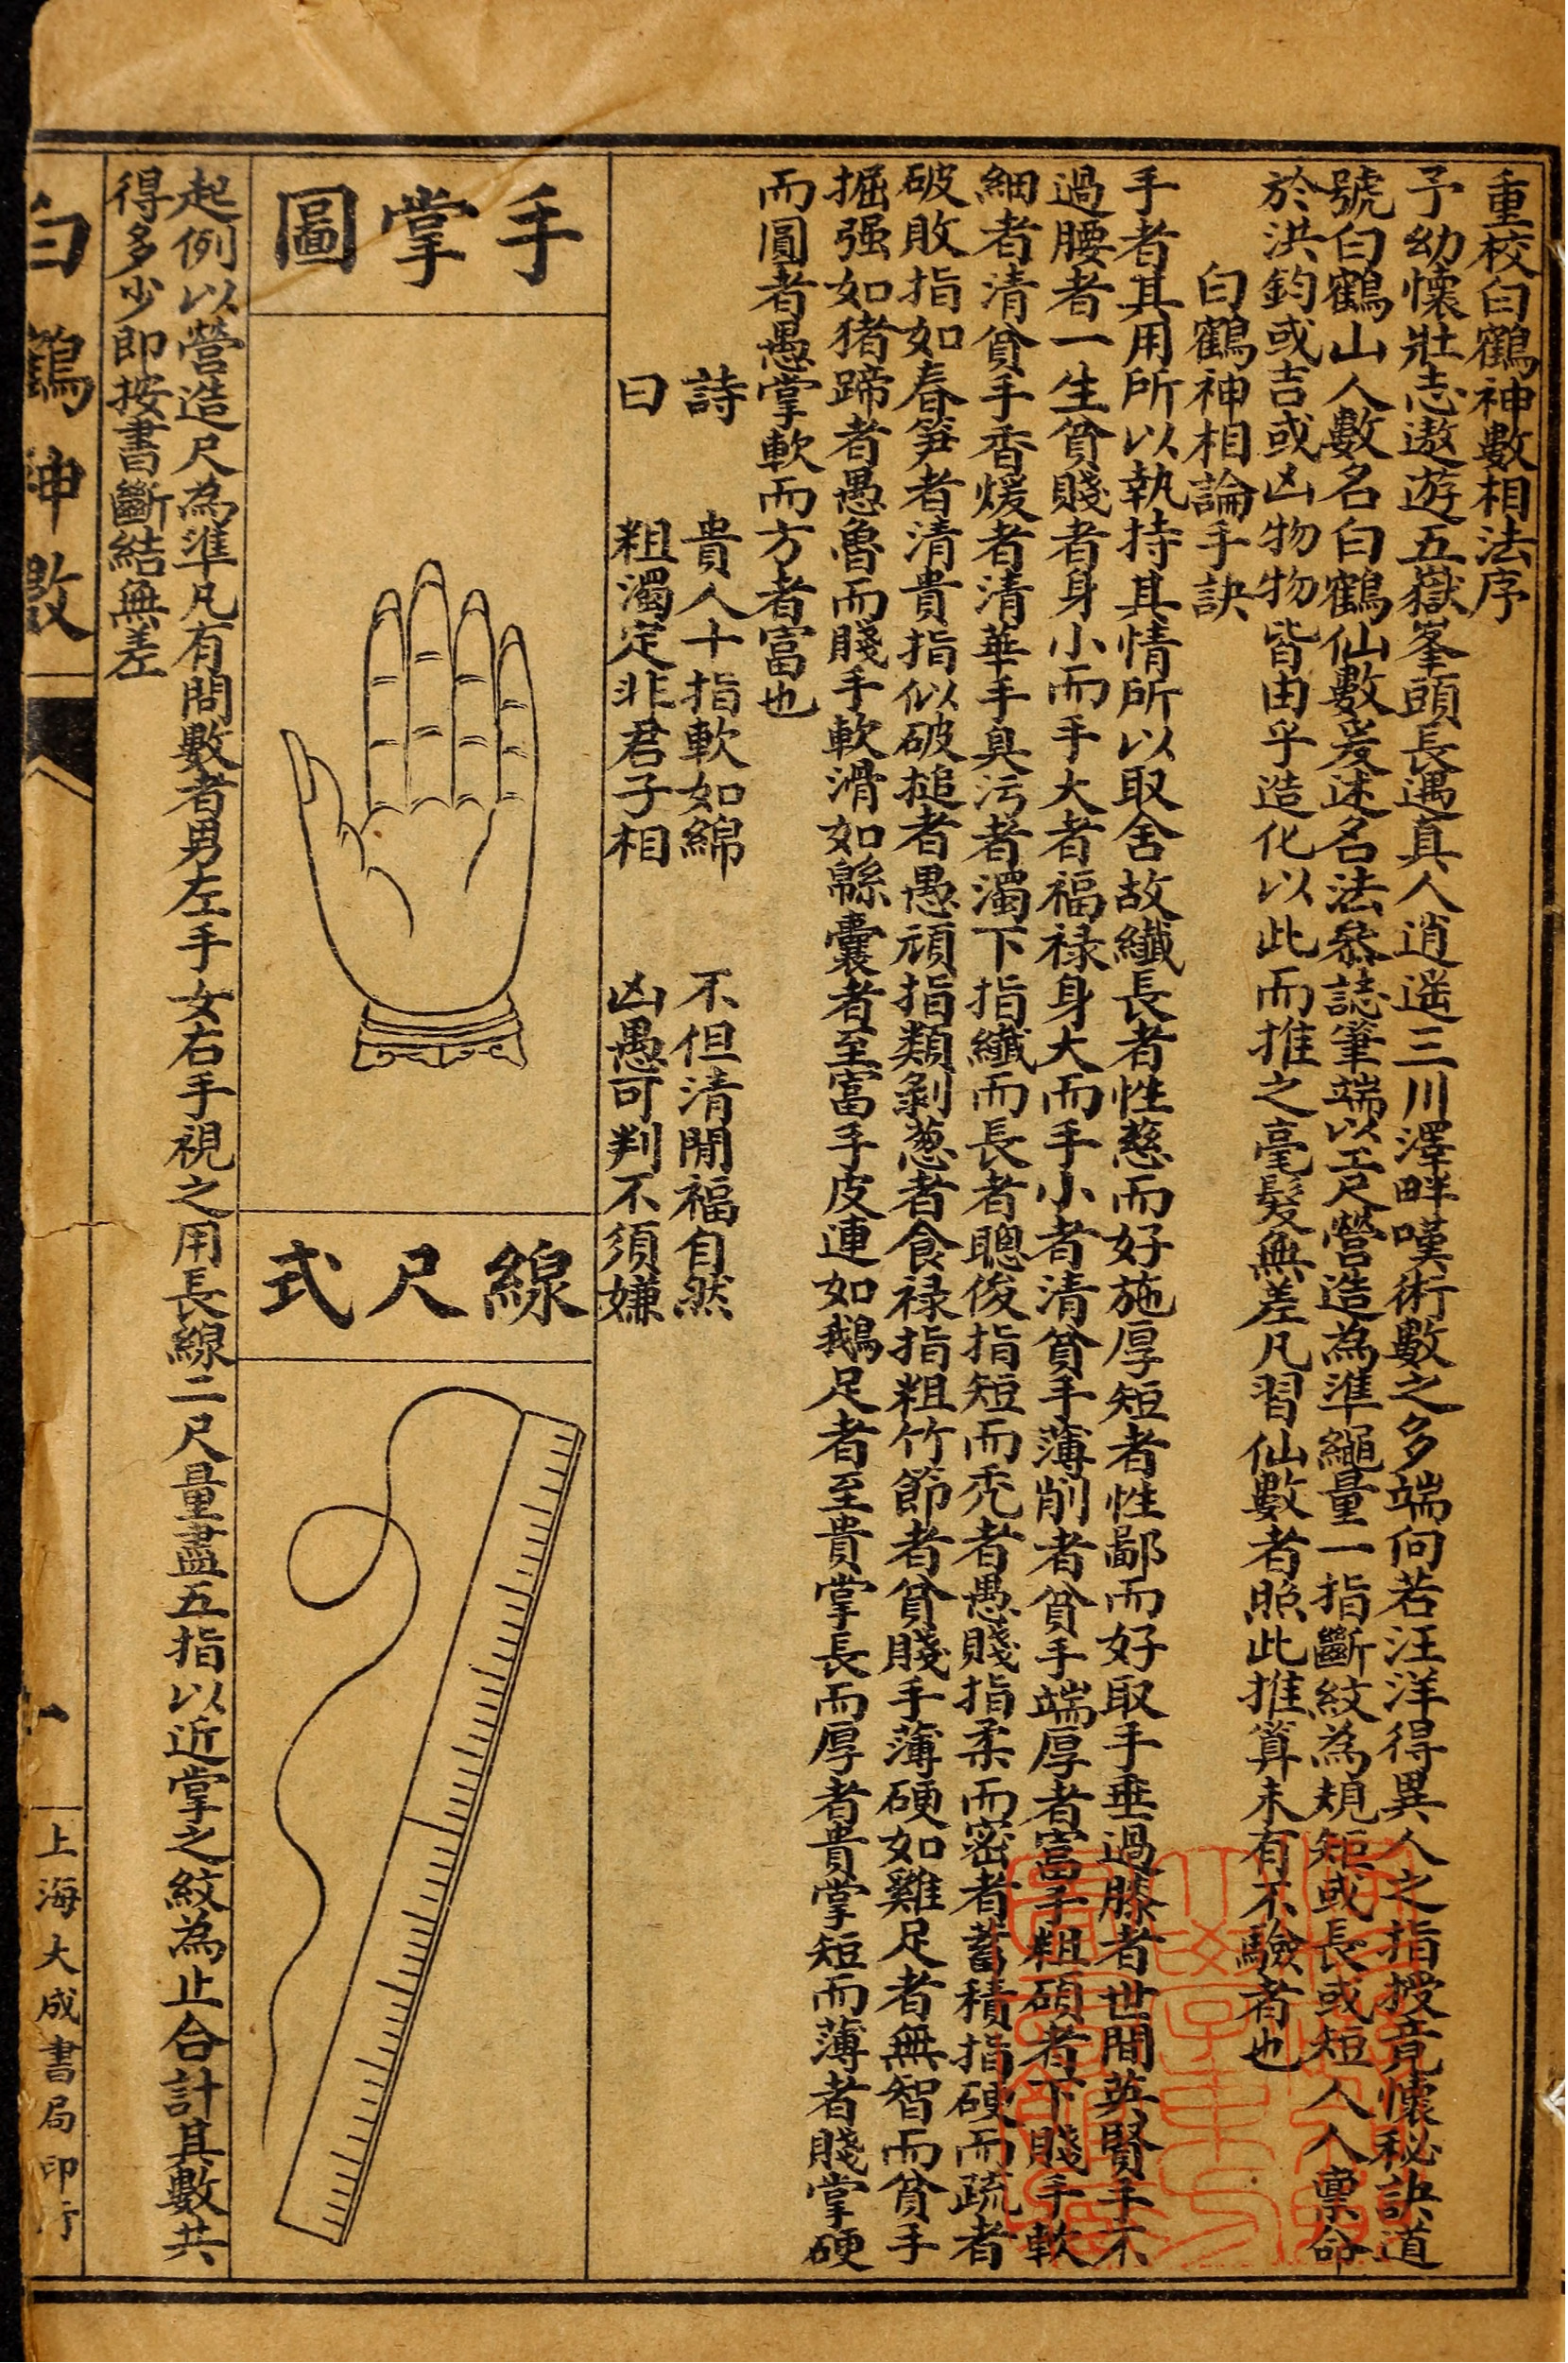 重校白鶴神數相法序
予幼懷壯志遨遊五嶽峯頭長遇真人逍遥三川澤畔嘆術數之多端向若汪洋得異人之指授竟懷秘訣道
號白鶴山人數名白鶴仙數爰述名法恭誌筆端以工尺營造為準繩量一指斷紋為規矩或長或短人人稟命
於洪鈞或吉或凶物物皆由乎造化以此而推之毫髮無差凡習仙數者照此推算未有不驗者也
白鶴神相論手訣
手者其用所以執持其情所以取舍故纖長者性慈而好施厚短者性鄙而好取手垂過膝者世間英賢手不
過腰者一生貧賤者身小而手大者福禄身大而手小者清貧手薄削者貧手端厚者富手粗硬者下賤手軟
細者清貧手香煖者清華手臭污者濁下指纖而長者聰俊指短而禿者愚賤指柔而密者蓄積指硬而疏者
破敗指如春笋者清貴指似破搥者愚頑指類剝葱者食禄指粗竹節者貧賤手薄硬如雞足者無智而貧手
掘强如猪蹄者愚魯而賤手軟滑如緜囊者至富手皮連如鵝足者至貴掌長而厚者貴掌短而薄者賤掌硬
而圓者愚掌軟而方者富也
詩 貴人十指軟如綿 不但清閒福自然
曰 粗濁定非君子相 凶愚可判不須嫌
手掌圖
線尺式
起例以營造尺為準凡有問數者男左手女右手視之用長線二尺量盡五指以近掌之紋為止合計其數共
得多少即按書斷結無差
白鶴神數
上海大成書局印行